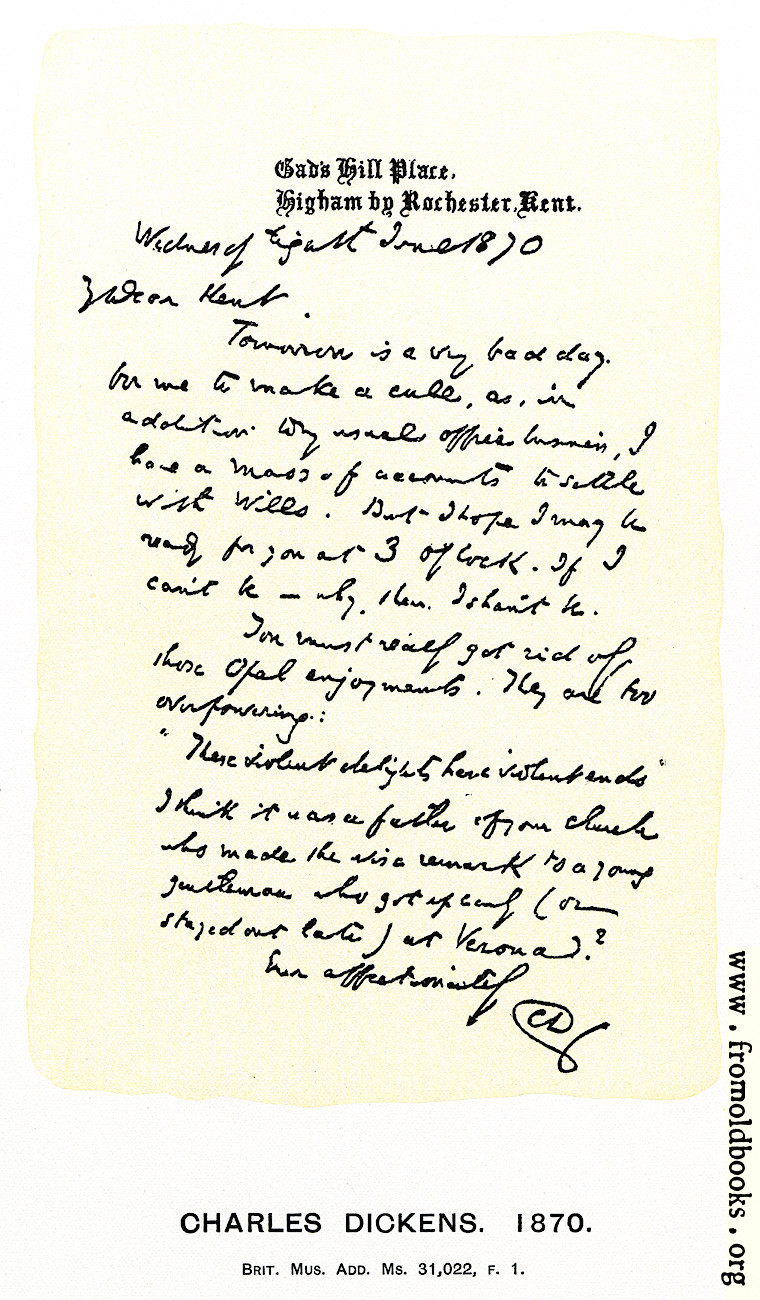 Gad's Hill Place,
Higham by Rochester, Kent.
Wednesy Eighth June 1870
My Dear Kent.
Tomorrow is a very bad day
for me to make a call, as, in
addition to my usual office business, I
have a mass of accounts to settle
with Wills. But I hope I may be
ready for you at 3 o'clock. If I
can't be — why, then I shan't be.
You must really get rid of
those Opal enjoyments. They are too
overpowering:
"These violent delights have violent ends"
I think it was a father of your church
who made the wise remark to a young
gentleman who got up early (or
stayed out late) at Verona?
Ever affectionately
CD
CHARLES DICKENS. 1870.
BRIT. MUS. ADD. MS. 31,022, F. 1.
www.fromoldbooks.org